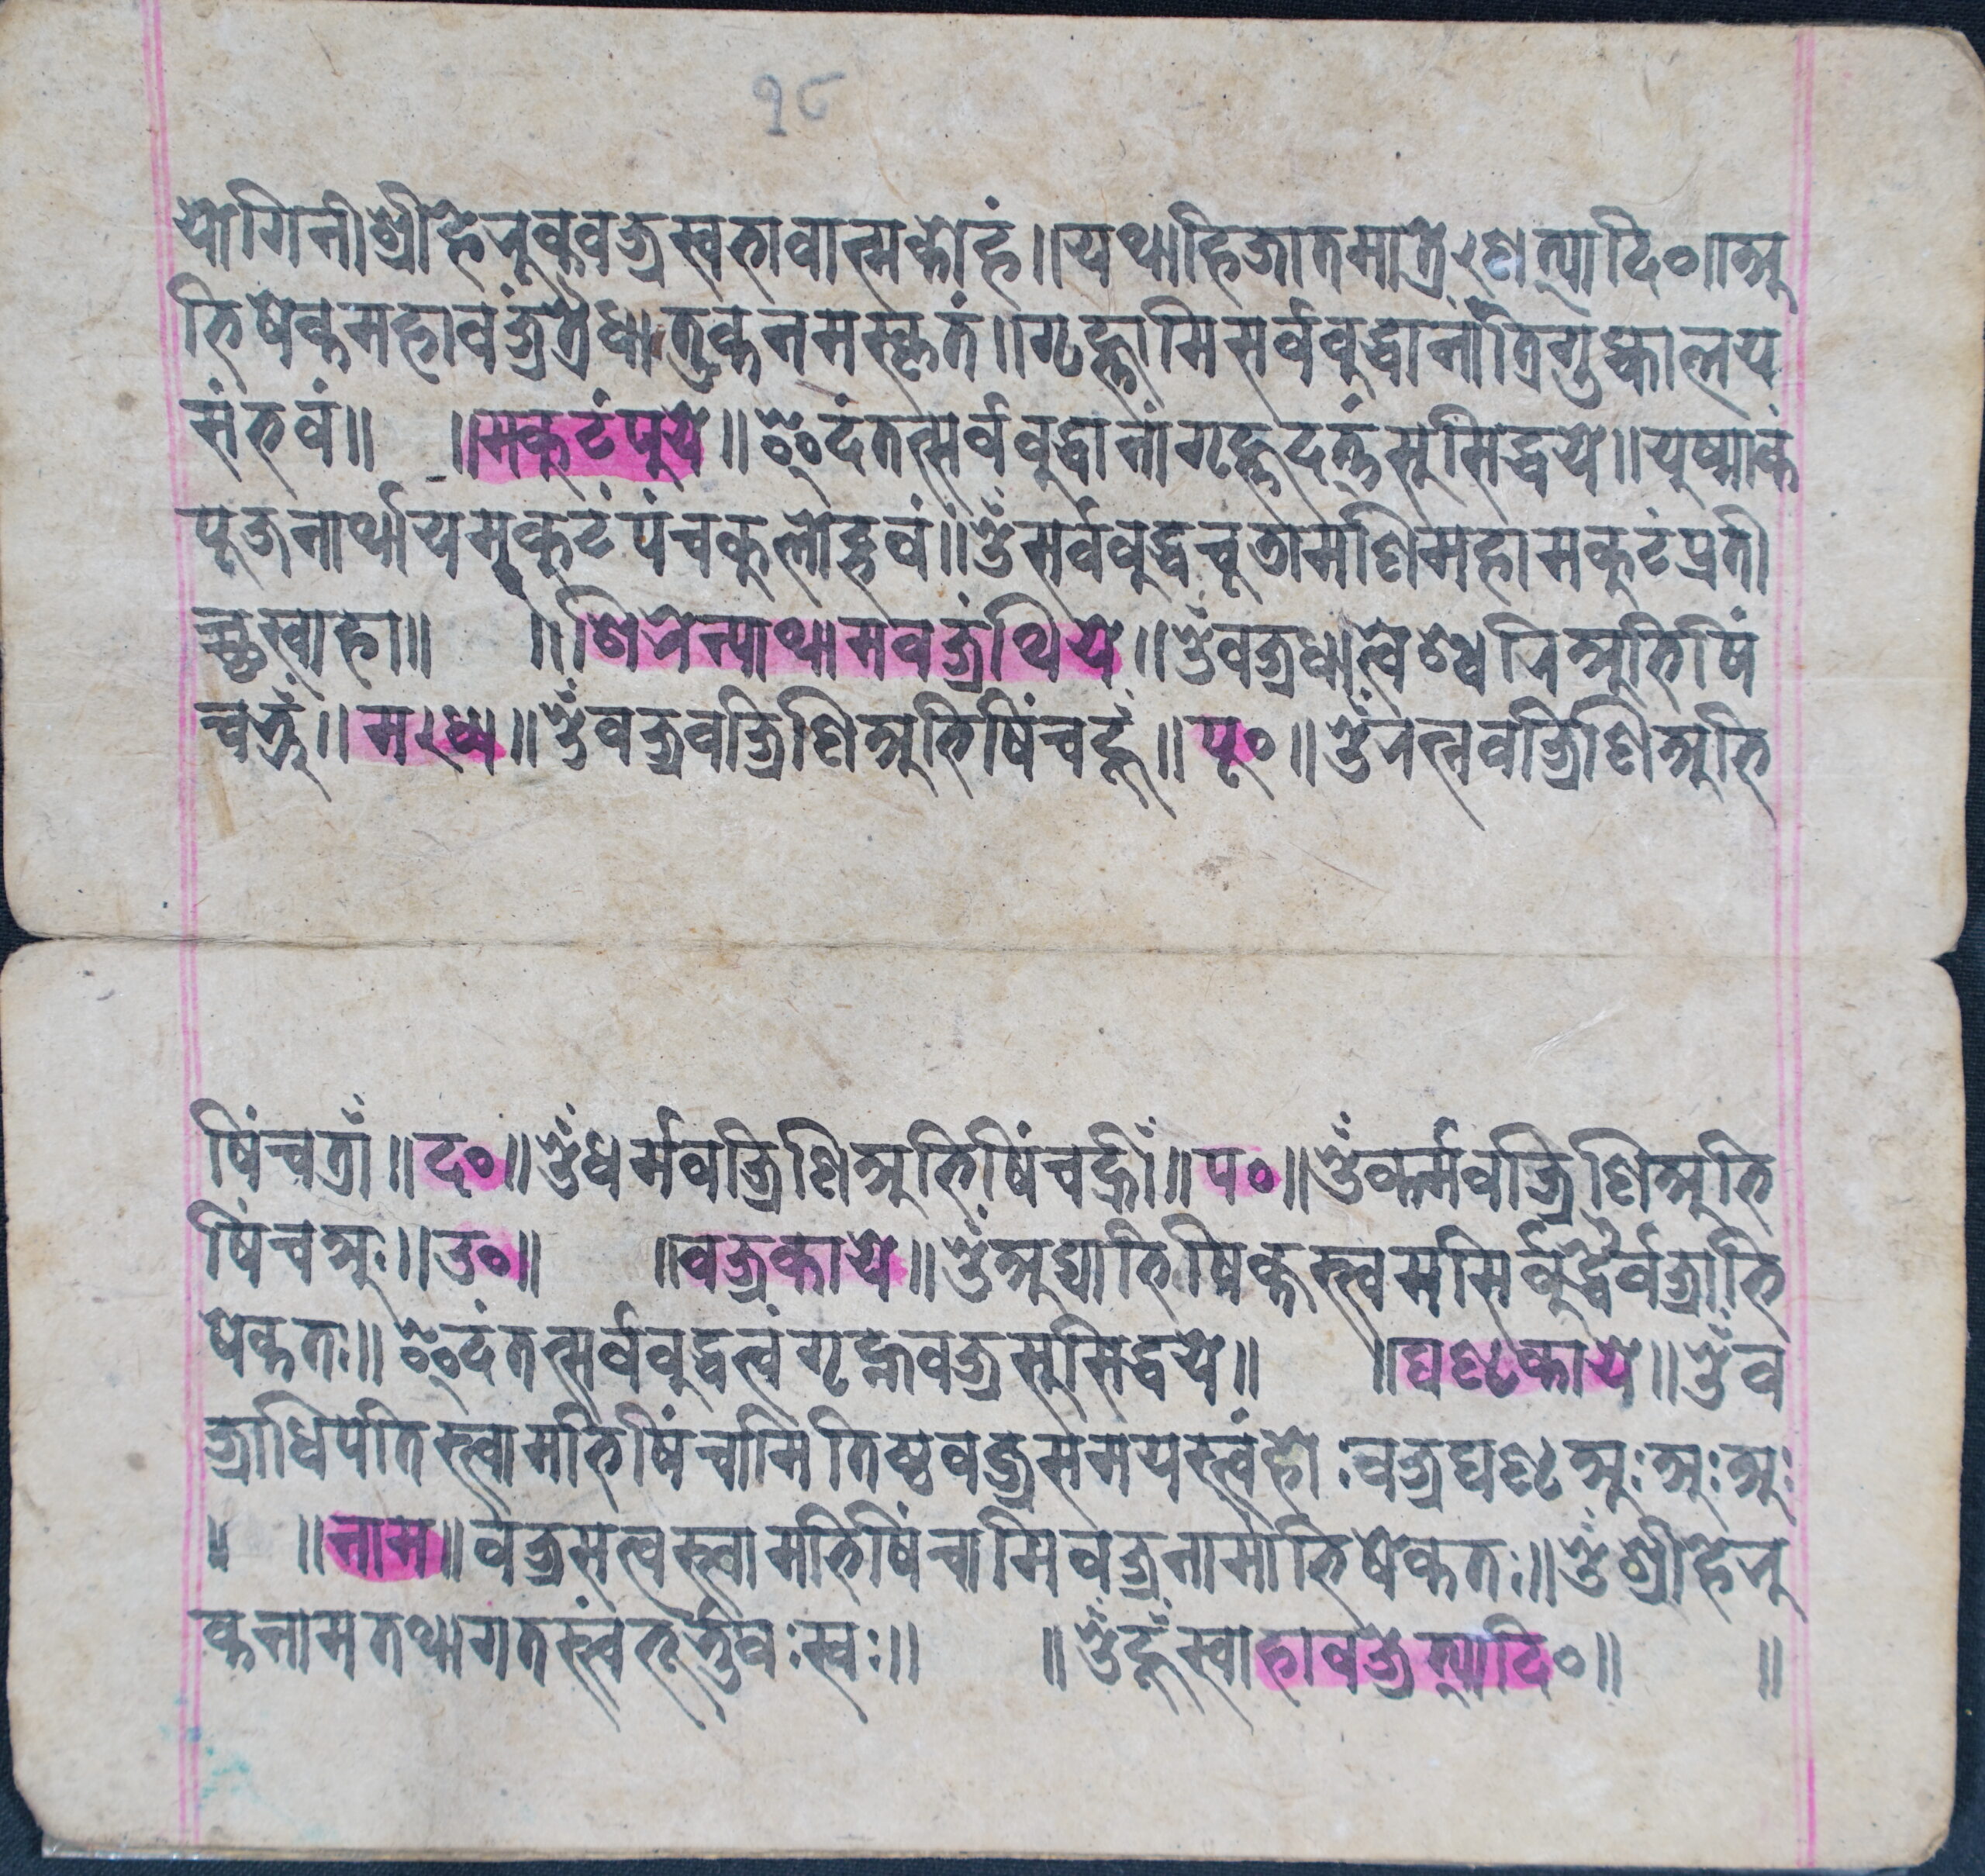 १८
योगिनीश्रीहेरुकवज्रस्वभावात्मकोहं॥यथाहिजातमात्रेणेत्यादि०॥अ
भिषेकमहावंज्रत्रैधातुकनमस्कृतं॥गृह्णामिसर्वबुद्धानांत्रिगुह्यालय
संभवं॥ ॥मकुटंपुये॥इदंतत्सर्वबुद्धानांगृह्णदत्तंसुसिद्धये॥युष्माकं
पूजनार्थायमुकुटंपंचकुलोद्भवं॥ॐसर्वबुद्धचूतामणिमहामकुटंप्रती
च्छस्वाहा॥ ॥शिरेन्याथामवज्रंथिये॥ॐवज्रधात्वेश्वरिअभिषिं
चभ्रुं॥मध्ये॥ॐवज्रवज्रिणिअभिषिंचहूं॥पू०॥ॐरत्नवज्रिणिअभि
षिंचत्राँ॥द०॥ॐधर्मवज्रिणिअभिषिंचह्रीँ॥प०॥ॐकर्मवज्रिणिअभि
षिंचअः॥उ०॥ ॥वज्रकाये॥ॐअद्याभिषिक्तस्त्वमसिर्बुद्धैर्वज्राभि
षेकतः॥इदंतत्सर्वबुद्धत्वंगृह्नवज्रसुसिद्धये॥ ॥घण्टकाये॥ॐव
ज्राधिपतिस्त्वामभिषिंचामितिष्ठवज्रसमयस्त्वंहोःवज्रघण्टअःअःअः
॥ ॥नाम॥वज्रसत्वस्त्वामभिषिंचामिवज्रनामाभिषेकतः॥ॐश्रीहेरु
कनामतथागतस्त्वंभूर्भुवःस्वः॥ ॥ॐहूँस्वाहावज्रेत्यादि०॥ ॥